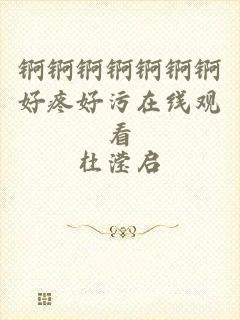 锕锕锕锕锕锕锕
好疼好污在线观
看
杜滢启